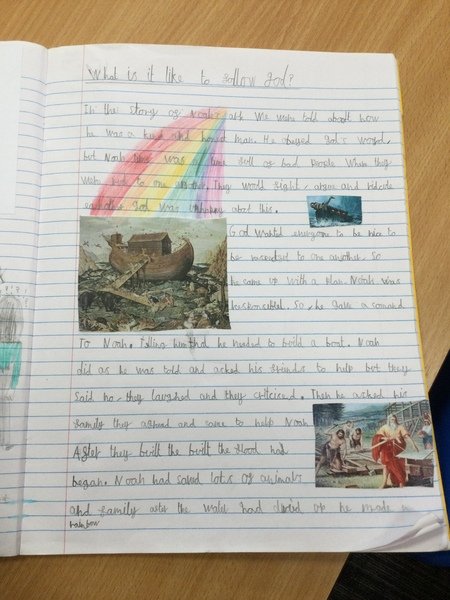 What is it like to follow God?
In the story of Noah's ark We were told about how
he was a kind and honest man. He obeyed God's word,
but Noah was full of bad people When they
were to one another. They would fight, argue and ridicule
God was unhappy about this.
God wanted everyone to be nice to
be respectful to one another. So
he came up with a plan. Noah was
responsible. So, he gave a comand
To Noah. Telling him that he needed to build a boat. Noah
did as he was told and asked his friends to help but they
said no, they laughed and they criticised. Then he asked his
family they and came to help Noah.
After they built the built the flood had
began. Noah had saved lots of animals
and family after the water had up he made a
rainbow